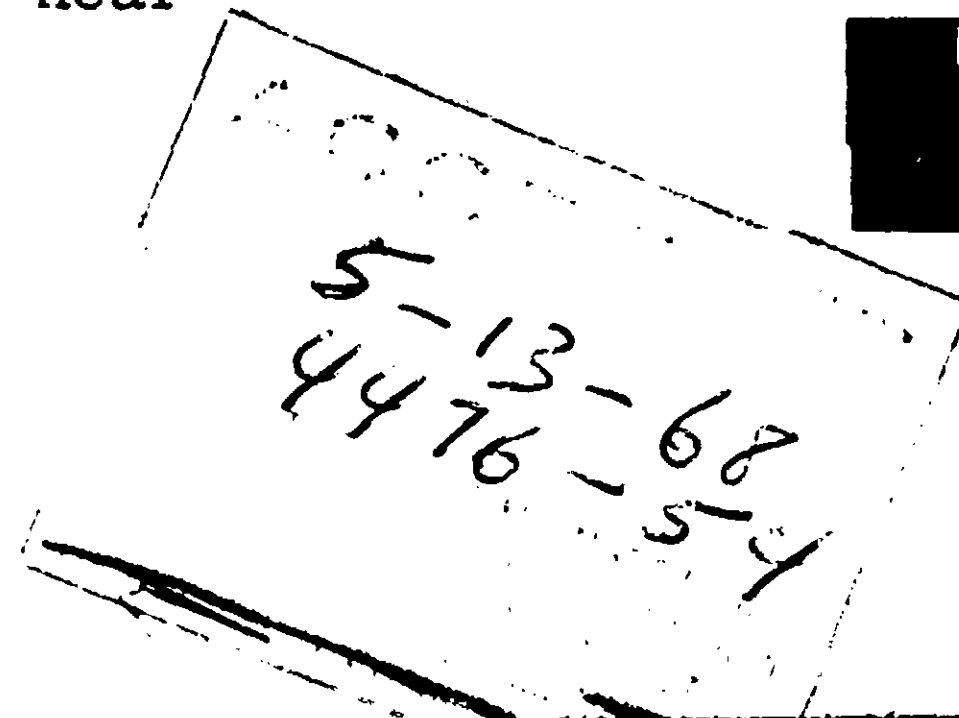 near
5-13-68
4476-54